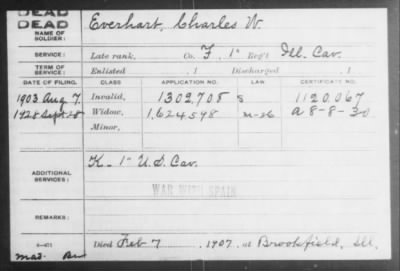 DEAD
DEAD
NAME OF SOLDIER: Everhart, Charles W.
SERVICE: Late rank, Co. F, 1" Reg't Ill. Cav.
TERM OF SERVICE: Enlisted , 1 Discharged , 1
DATE OF FILING. CLASS APPLICATION NO. LAW CERTIFICATE NO.
1903 Aug 7. Invalid, 1302,708 S 1120,067
1928 Sept 28 Widow, 1,624,598 M-26 A 8-8-30
Minor,
ADDITIONAL SERVICES: K - 1" U.S. Cav.
WAR WITH SPAIN
REMARKS:
Died Feb 7, 1907, at Brookfield, Ill.